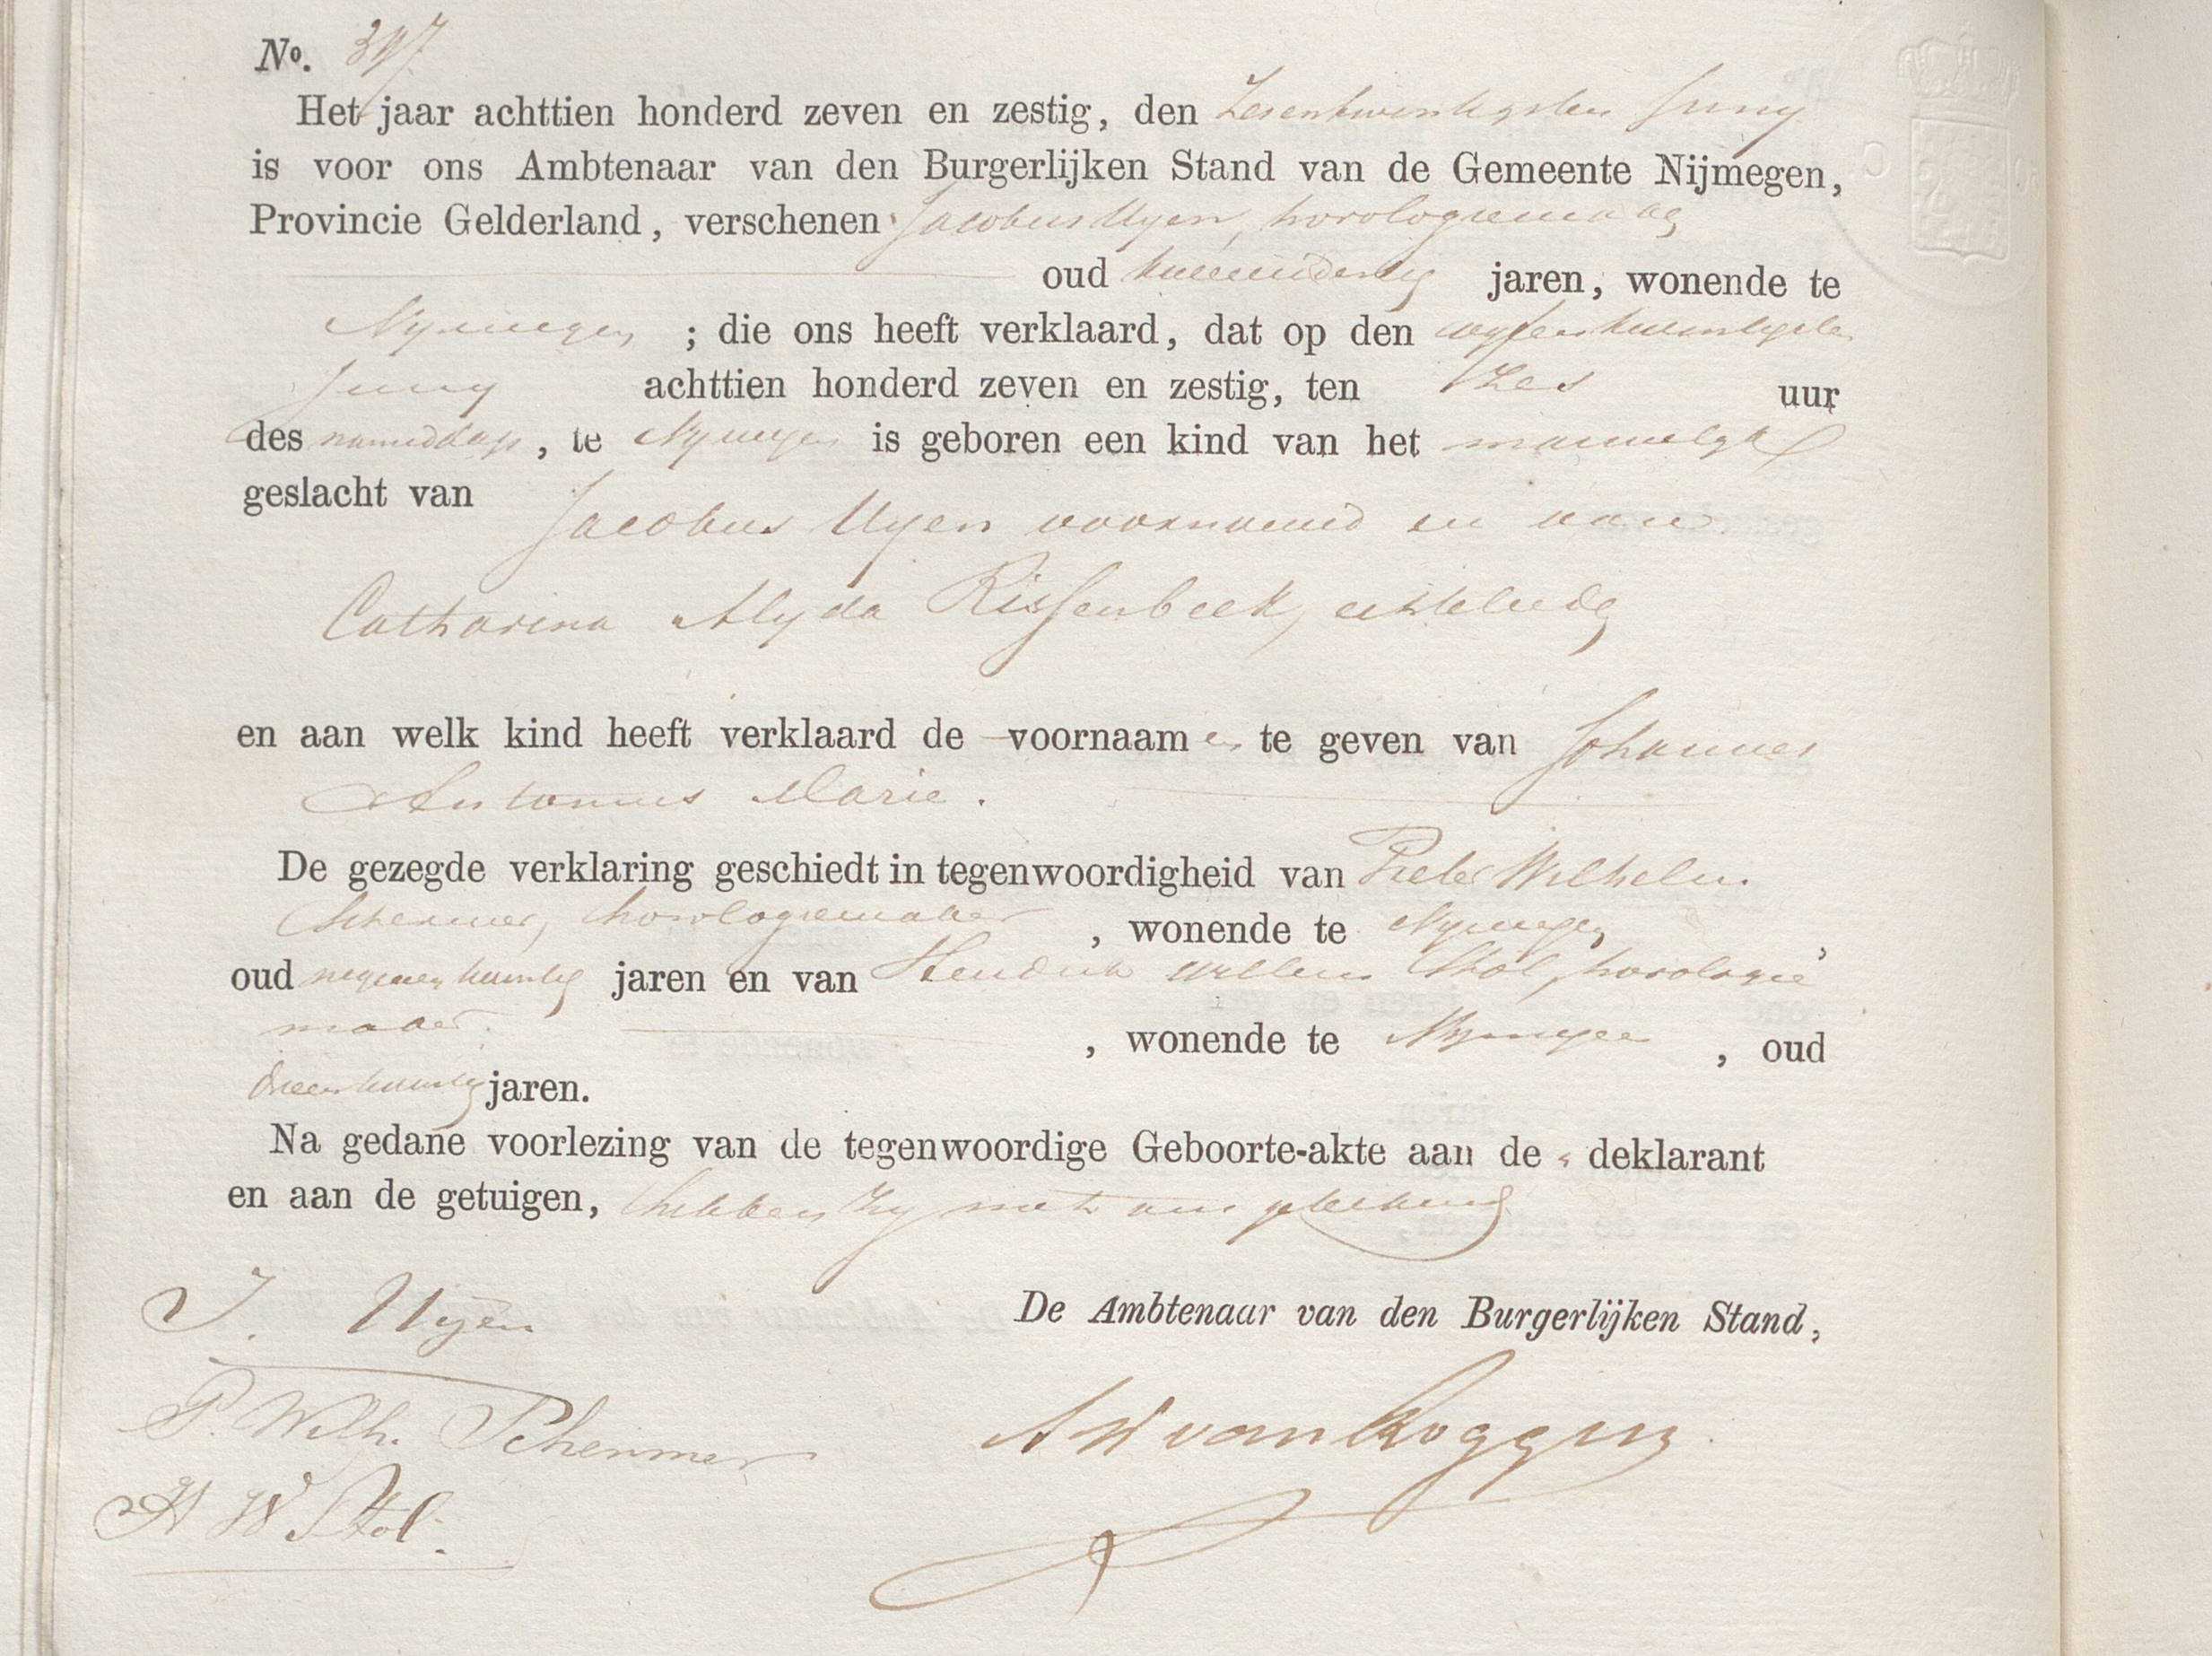 No. 397
Het jaar achttien honderd zeven en zestig, den Zesentwintigsten Juny
is voor ons Ambtenaar van den Burgerlijken Stand van de Gemeente Nijmegen,
Provincie Gelderland, verschenen Jacobus Uyen, horologiemaker
oud jaren, wonende te
Nymegen ; die ons heeft verklaard, dat op den vyfentwintigsten
Juny achttien honderd zeven en zestig, ten Zes uur
des namiddags, te Nymegen is geboren een kind van het mannelyk
geslacht van
Jacobus Uyen voornoemd en van
Catharina Alyda Rissenbeek, echtelieden
en aan welk kind heeft verklaard de voornaamen te geven van Johannes
Antonius Marie.
De gezegde verklaring geschiedt in tegenwoordigheid van Pieter Wilhelm
Schermer, horologiemaker, wonende te Nymegen,
oud negenentwintig jaren en van Hendrik Willem Stol, horologie
maker, wonende te Nymegen, oud
drieentwintig jaren.
Na gedane voorlezing van de tegenwoordige Geboorte-akte aan de deklarant
en aan de getuigen, hebben zy met ons geteekend
J. Uijen
De Ambtenaar van den Burgerlijken Stand,
P. Wilh. Schermer
van Roggen
H W Stol.